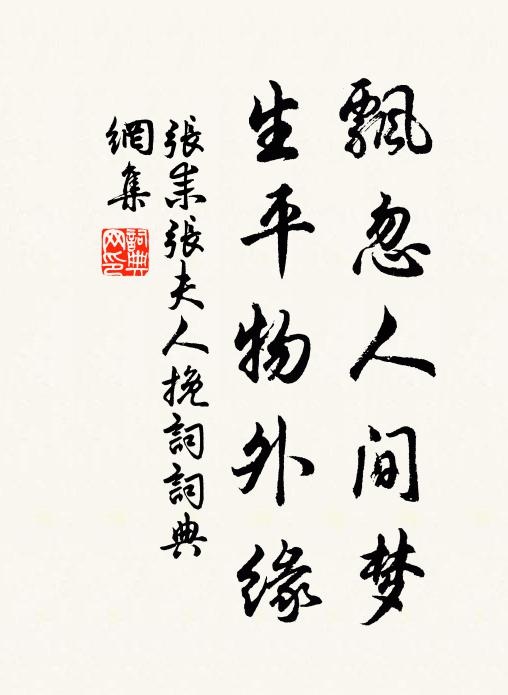 飄忽人间梦
生平物外缘
張耒張夫人挽詞詞典
網集
詞典
网印